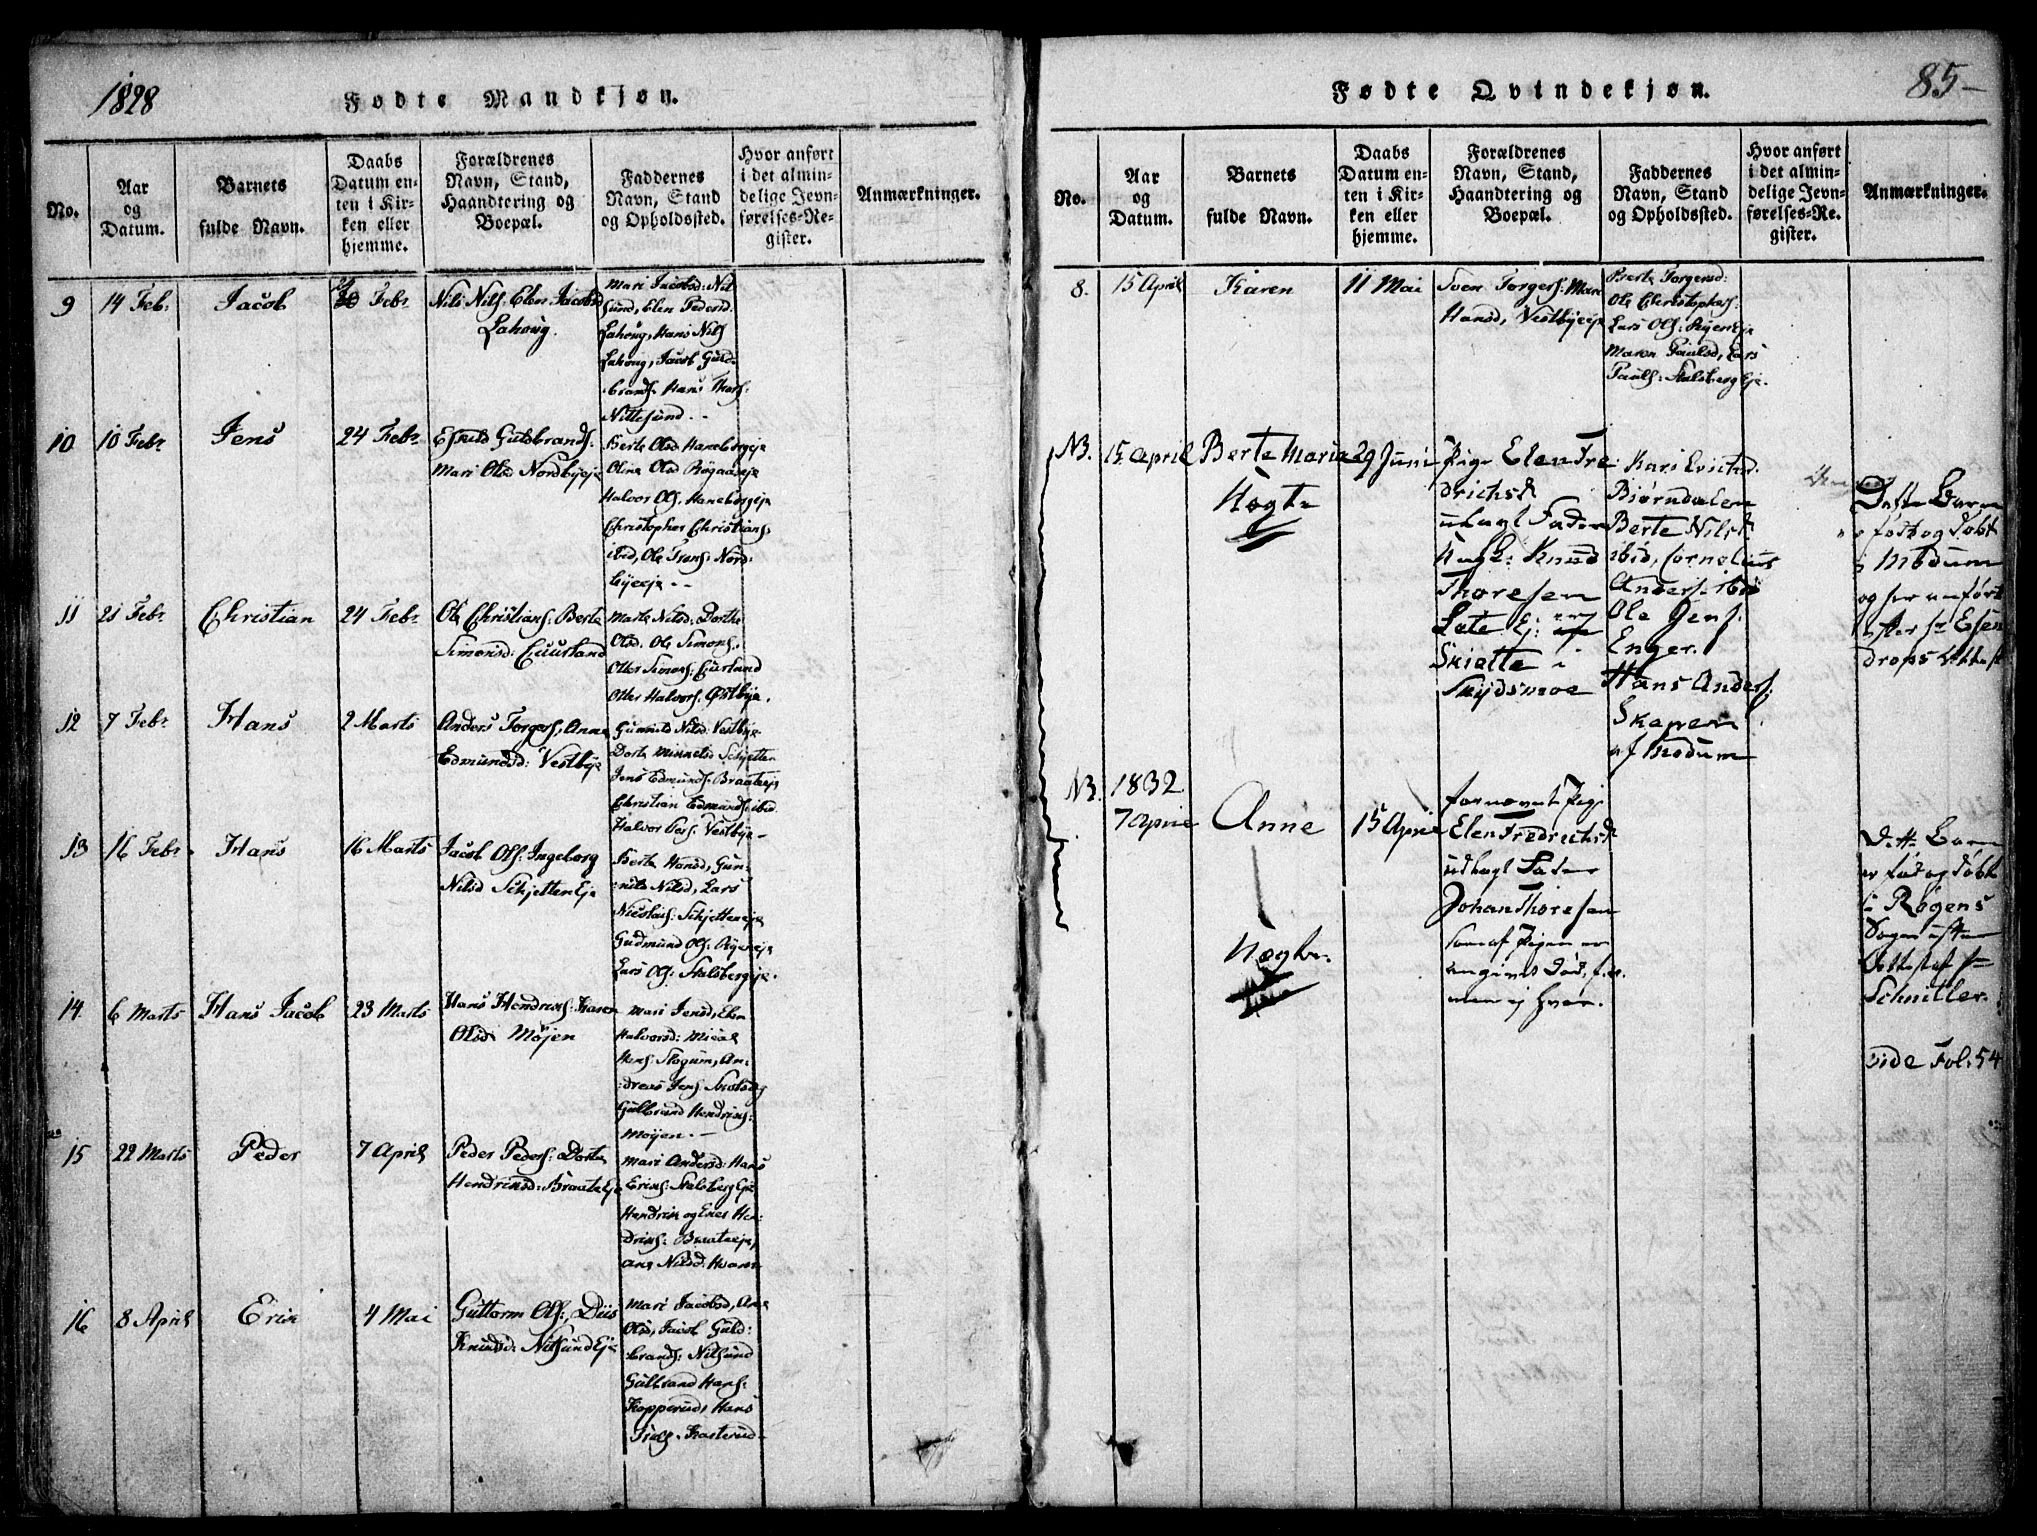 1828
Fødte Mandkjøn.
No.
Aar
og
Datum.
Barnets
fulde Navn.
Daabs
Datum en-
ten i Kir-
ken eller
hjemme.
Forældrenes
Navn, Stand,
Haandtering og
Boepæl.
Faddernes
Navn, Stand
og Opholdssted.
Hvor anført
i det almin-
delige Jevn-
førelses-Re-
gister.
Anmærkninger.
9
14 Feb:
Jacob
Febr
Nils Nils Elen Jacobsd
Lahoug.
Mari Jacobsd: Nit
sund, Elen Pedersd.
Lahoug, Hans Nils
Lahoug, Jacob Guld-
brands: Hans Thors:
Nittesund. -
10
10 Febr
Jens
24 Febr
Guldbrands:
Mari Olsd Nordbyeje
Berte Olsd Haneborgeje
Oline Olsd
Halvor Ols: Haneborgeje
Christopher Christians:
ibid, Ole Frans: Nord-
byeeje - -
11
21 Febr
Christian
24 Febr
Ole Christians: Berte
Simonsd:
Marte Nilsd: Dorthe
Olsd. Ole Simons:
Otter Simons:
Otter Halvors: Østbye.
12
7 Febr
Hans
2 Marts
Anders Torgers, Anne
Edmundsd: Vestbye
Gunnild Nilsd: Vestbye
Dorte Schjetten
Jens Edmunds: Braateeje
Christian Edmunds: ibid
Halvor Pers: Vestbye -
13
16 Febr
Hans
16 Marts
Jacob Ols: Ingeborg
Nilsd Schjetten Eje
Berte Hansd, Gun-
nild Nilsd, Lars
Nicolais: Schjetteneje
Gudmund Ols: Ryeneje
Lars Ols: Stalsbergeje.
14.
6 Marts
Hans Jacob
23 Marts
Hans Hendriks: Karen
Olsd Møjen
Mari Jensd, Elen
Halvorsd: Micael
Hans: Skogum, An-
dreas Jens
Gulbrand Hendriks:
Moyen. -
15
22 Marts
Peder
7 April
Peder Peders: Dorte
Hendriksd: Braate Eje
Mari Andersd: Hans
Eriks: Stalsberg Eje
Hendrik og Hen-
driks: Braateeje,
ane Nilsd:
16
8 April
Erik
4 Mai
Guttorm Ols:
Knudsd: Nitsund Eje
Mari Jacobsd, Ane
Olsd, Jacob Guld-
brands: Nitsund
Gulbrand Hans:
Kopperud, Hans
85-
Fødte Qvindekjøn.
No.
Aar
og
Datum.
Barnets
fulde Navn.
Daabs
Datum en-
ten i Kir-
ken eller
hjemme.
Forældrenes
Navn, Stand,
Haandtering og
Boepæl.
Faddernes
Navn, Stand
og Opholdssted.
Hvor anført
i det almin-
delige Jevn-
førelses-Re-
gister.
Anmærkninger.
8.
15 April
Karen
11 Mai
Sven Torgers: Mari
Hansd, Vestbyeje
Berte Torgersd:
Ole Christophers:
Lars Ols: Ryen Eje
Maren Paulsd, Lars
Pauls: Stalsberg Eje.
NB.
15 April
Berte Maria
Uægte
29 Juni
Pige Elen Fre
drichsd
udlagt Fader
Ungk: Knud
Thoresen
Skiette i
Skydsmoe
Kari
Bjørndalen
Berte Nilsd
ibid, Cornelius
Anders: ibid
Ole Jens:
Enger.
Hans Anders:
af Modum
Dette Barn
er fød og døbt
i Modum
og her anført
efter Hr Esen
drops Attest
NB.
1832
7 April
Anne
Uægte.
15 April
fornævnt Pige
Elen Fredrichsd
udlagt Fader
Johan Thoresen
som af Pigen er
angivet
men ej hvor.
Dette Barn
er fød og døbt
i Røgens
Sogn efter
Attest af Hr
Schnitler.
vide Fol: 54